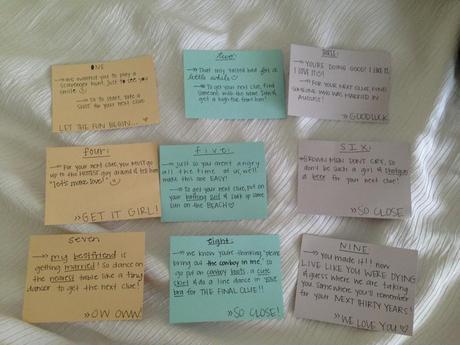 ONE
→ we wanted you to play a
scavenger hunt just to see you
smile
→ So to start, take a
shot for your next clue
LET THE FUN BEGIN...
two:
→ That may tasted bad for a
little while
→ To get your next clue, find
someone with the name
get a high five from him!
→ YOU'RE DOING GOOD! I LIKE IT,
I LOVE IT!
→ FOR YOUR NEXT CLUE FIND
SOMEONE WHO WAS MARRIED IN
AUGUST!
»GOODLUCK
four:
→ For your next clue, you MUST go
up to the HOTTEST guy around & tell him
"let's make love!"
»GET IT GIRL!
five:
→ Just so you arent angry
all the time at us, we'll
make this one EASY!
→ To get your next clue, put on
your bathing suit & soak up some
sun on the BEACH ♡
SIX:
→ GROWN MEN DON'T CRY, so
don't be such a girl & shotgun
a beer for your next clue!
»SO CLOSE
seven
→ my bestfriend is
getting married! So dance on
the nearest table like a tiny
dancer to get the next clue!
»OW OWW!
eight:
→ we know you're thinking "please
bring out the cowboy in me," so
go put on cowboy boots, a cute
skirt & do a line dance in your
bra for THE FINAL CLUE!!
»SO CLOSE!
NINE:
→ YOU made IT!! now
LIVE LIKE YOU WERE DYING
& guess where we are taking
you somewhere you'll remember
for your NEXT THIRTY YEARS!
»WE LOVE YOU ♡